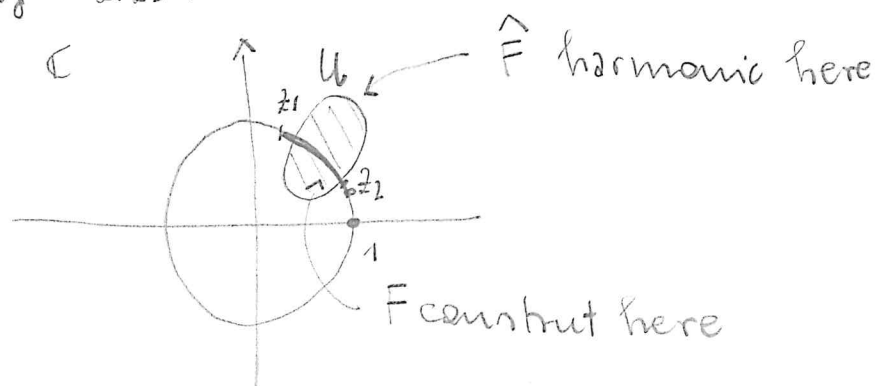 ℂ
U
F̂ harmonic here
z1
z2
1
F construt here